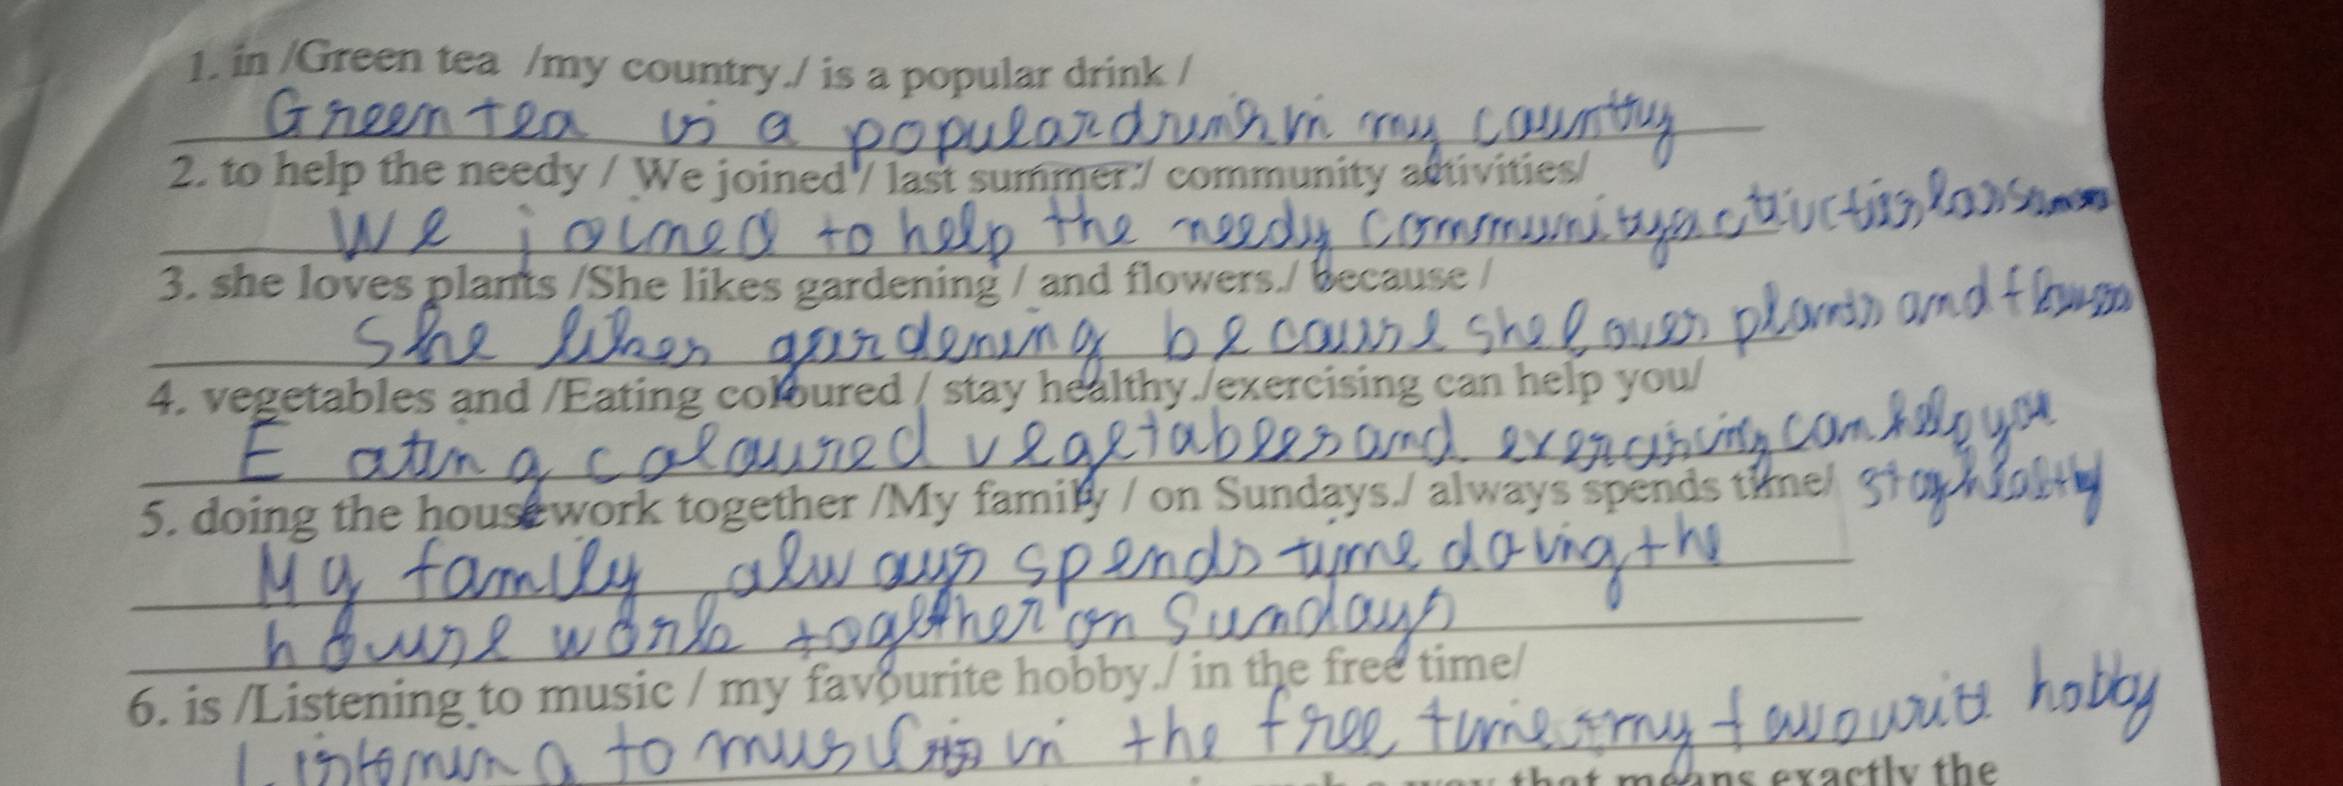 1. in /Green tea /my country./ is a popular drink /
Green tea is a popular drink in my country
2. to help the needy / We joined / last summer./ community activities/
We joined to help the needy community activities last
3. she loves plants /She likes gardening / and flowers./ because /
She likes gardening because she loves plants and flowers
4. vegetables and /Eating coloured / stay healthy./exercising can help you/
Eating coloured vegetables and exercising can help you
stay healthy
5. doing the housework together /My family / on Sundays./ always spends time/
My family always spends time doing the
house work together on Sundays
6. is /Listening to music / my favourite hobby./ in the free time/
Listening to music in the free time my favourite hobby
that means exactly the